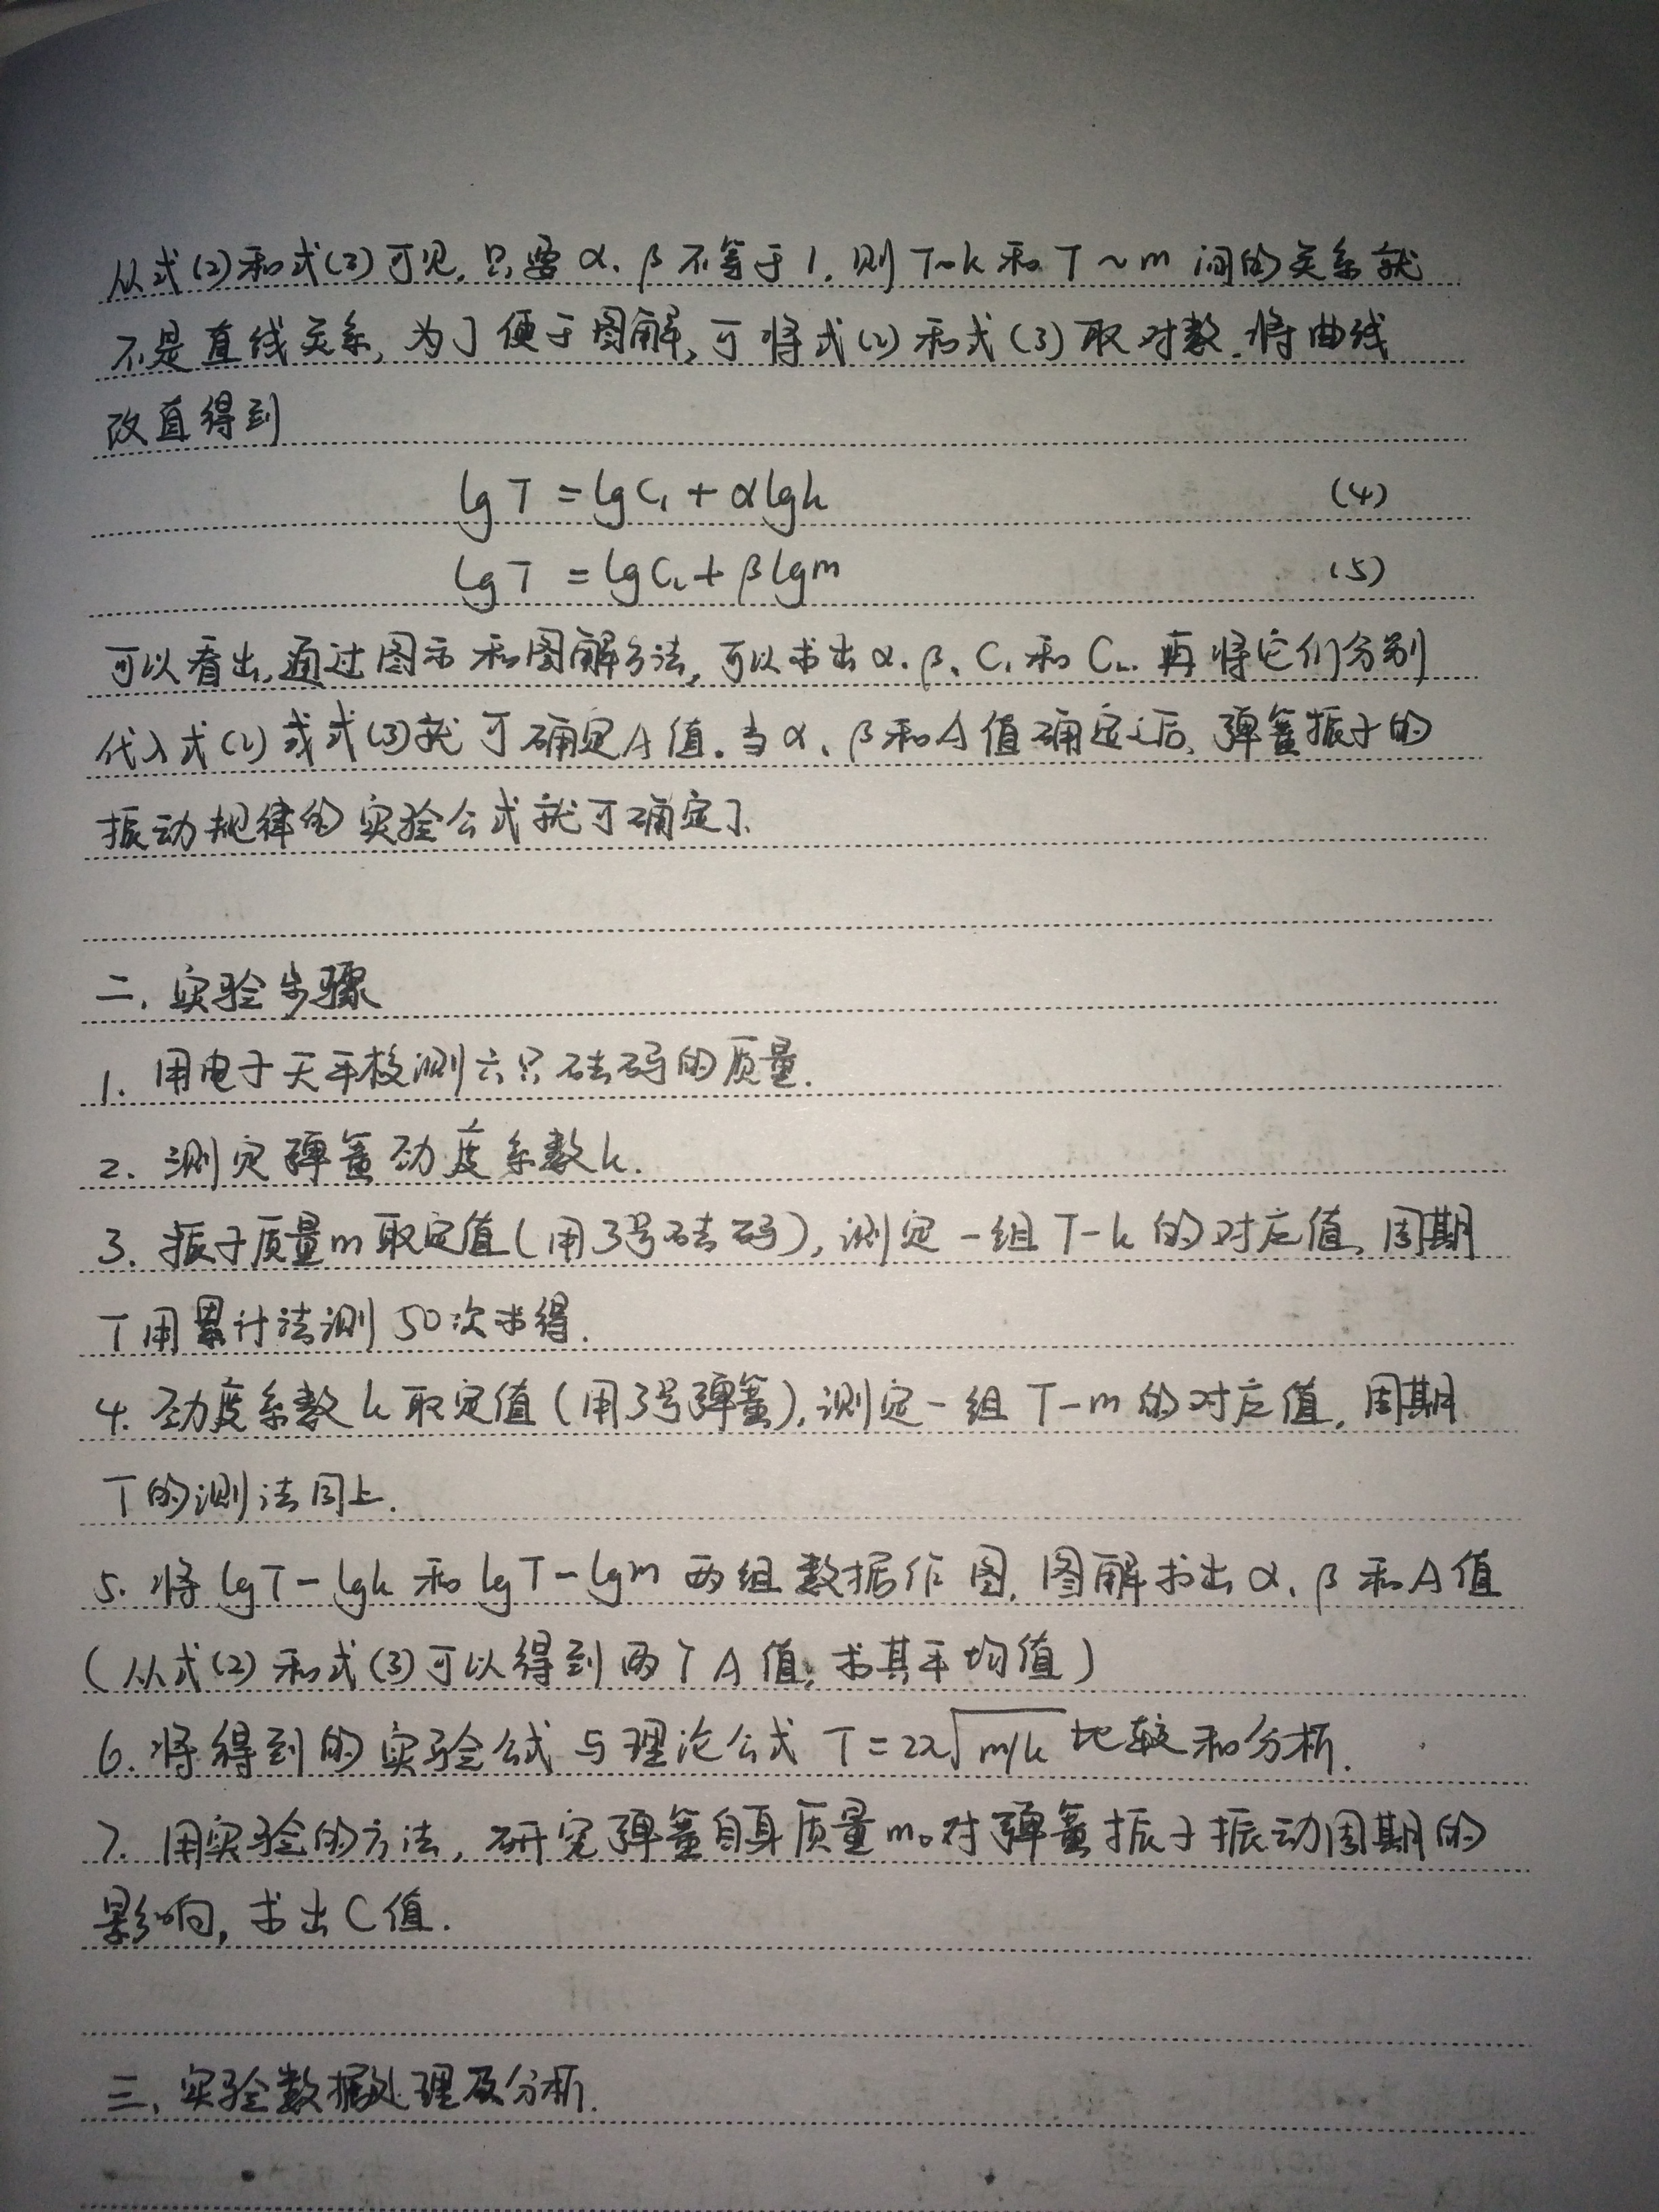 从式(2)和式(3)可见,只要α、β不等于1,则T~k和T~m间的关系就
不是直线关系,为了便于图解,可将式(2)和式(3)取对数,将曲线
改直得到
lgT=lgC₁+αlgk (4)
lgT=lgC₂+βlgm (5)
可以看出,通过图示和图解方法,可以求出α、β、C₁和C₂.再将它们分别
代入式(2)或式(3)就可确定A值.当α、β和A值确定之后,弹簧振子的
振动规律的实验公式就可确定了.
二、实验步骤
1.用电子天平校测六只砝码的质量.
2.测定弹簧劲度系数k.
3.振子质量m取定值(用3号砝码),测定一组T-k的对应值,周期
T用累计法测50次求得.
4.劲度系数k取定值(用3号弹簧),测定一组T-m的对应值,周期
T的测法同上.
5.将lgT-lgk和lgT-lgm两组数据作图,图解求出α、β和A值
(从式(2)和式(3)可以得到两个A值,求其平均值)
6.将得到的实验公式与理论公式T=2π√m/k比较和分析.
7.用实验的方法,研究弹簧自身质量m₀对弹簧振子振动周期的
影响,求出C值.
三、实验数据处理及分析.